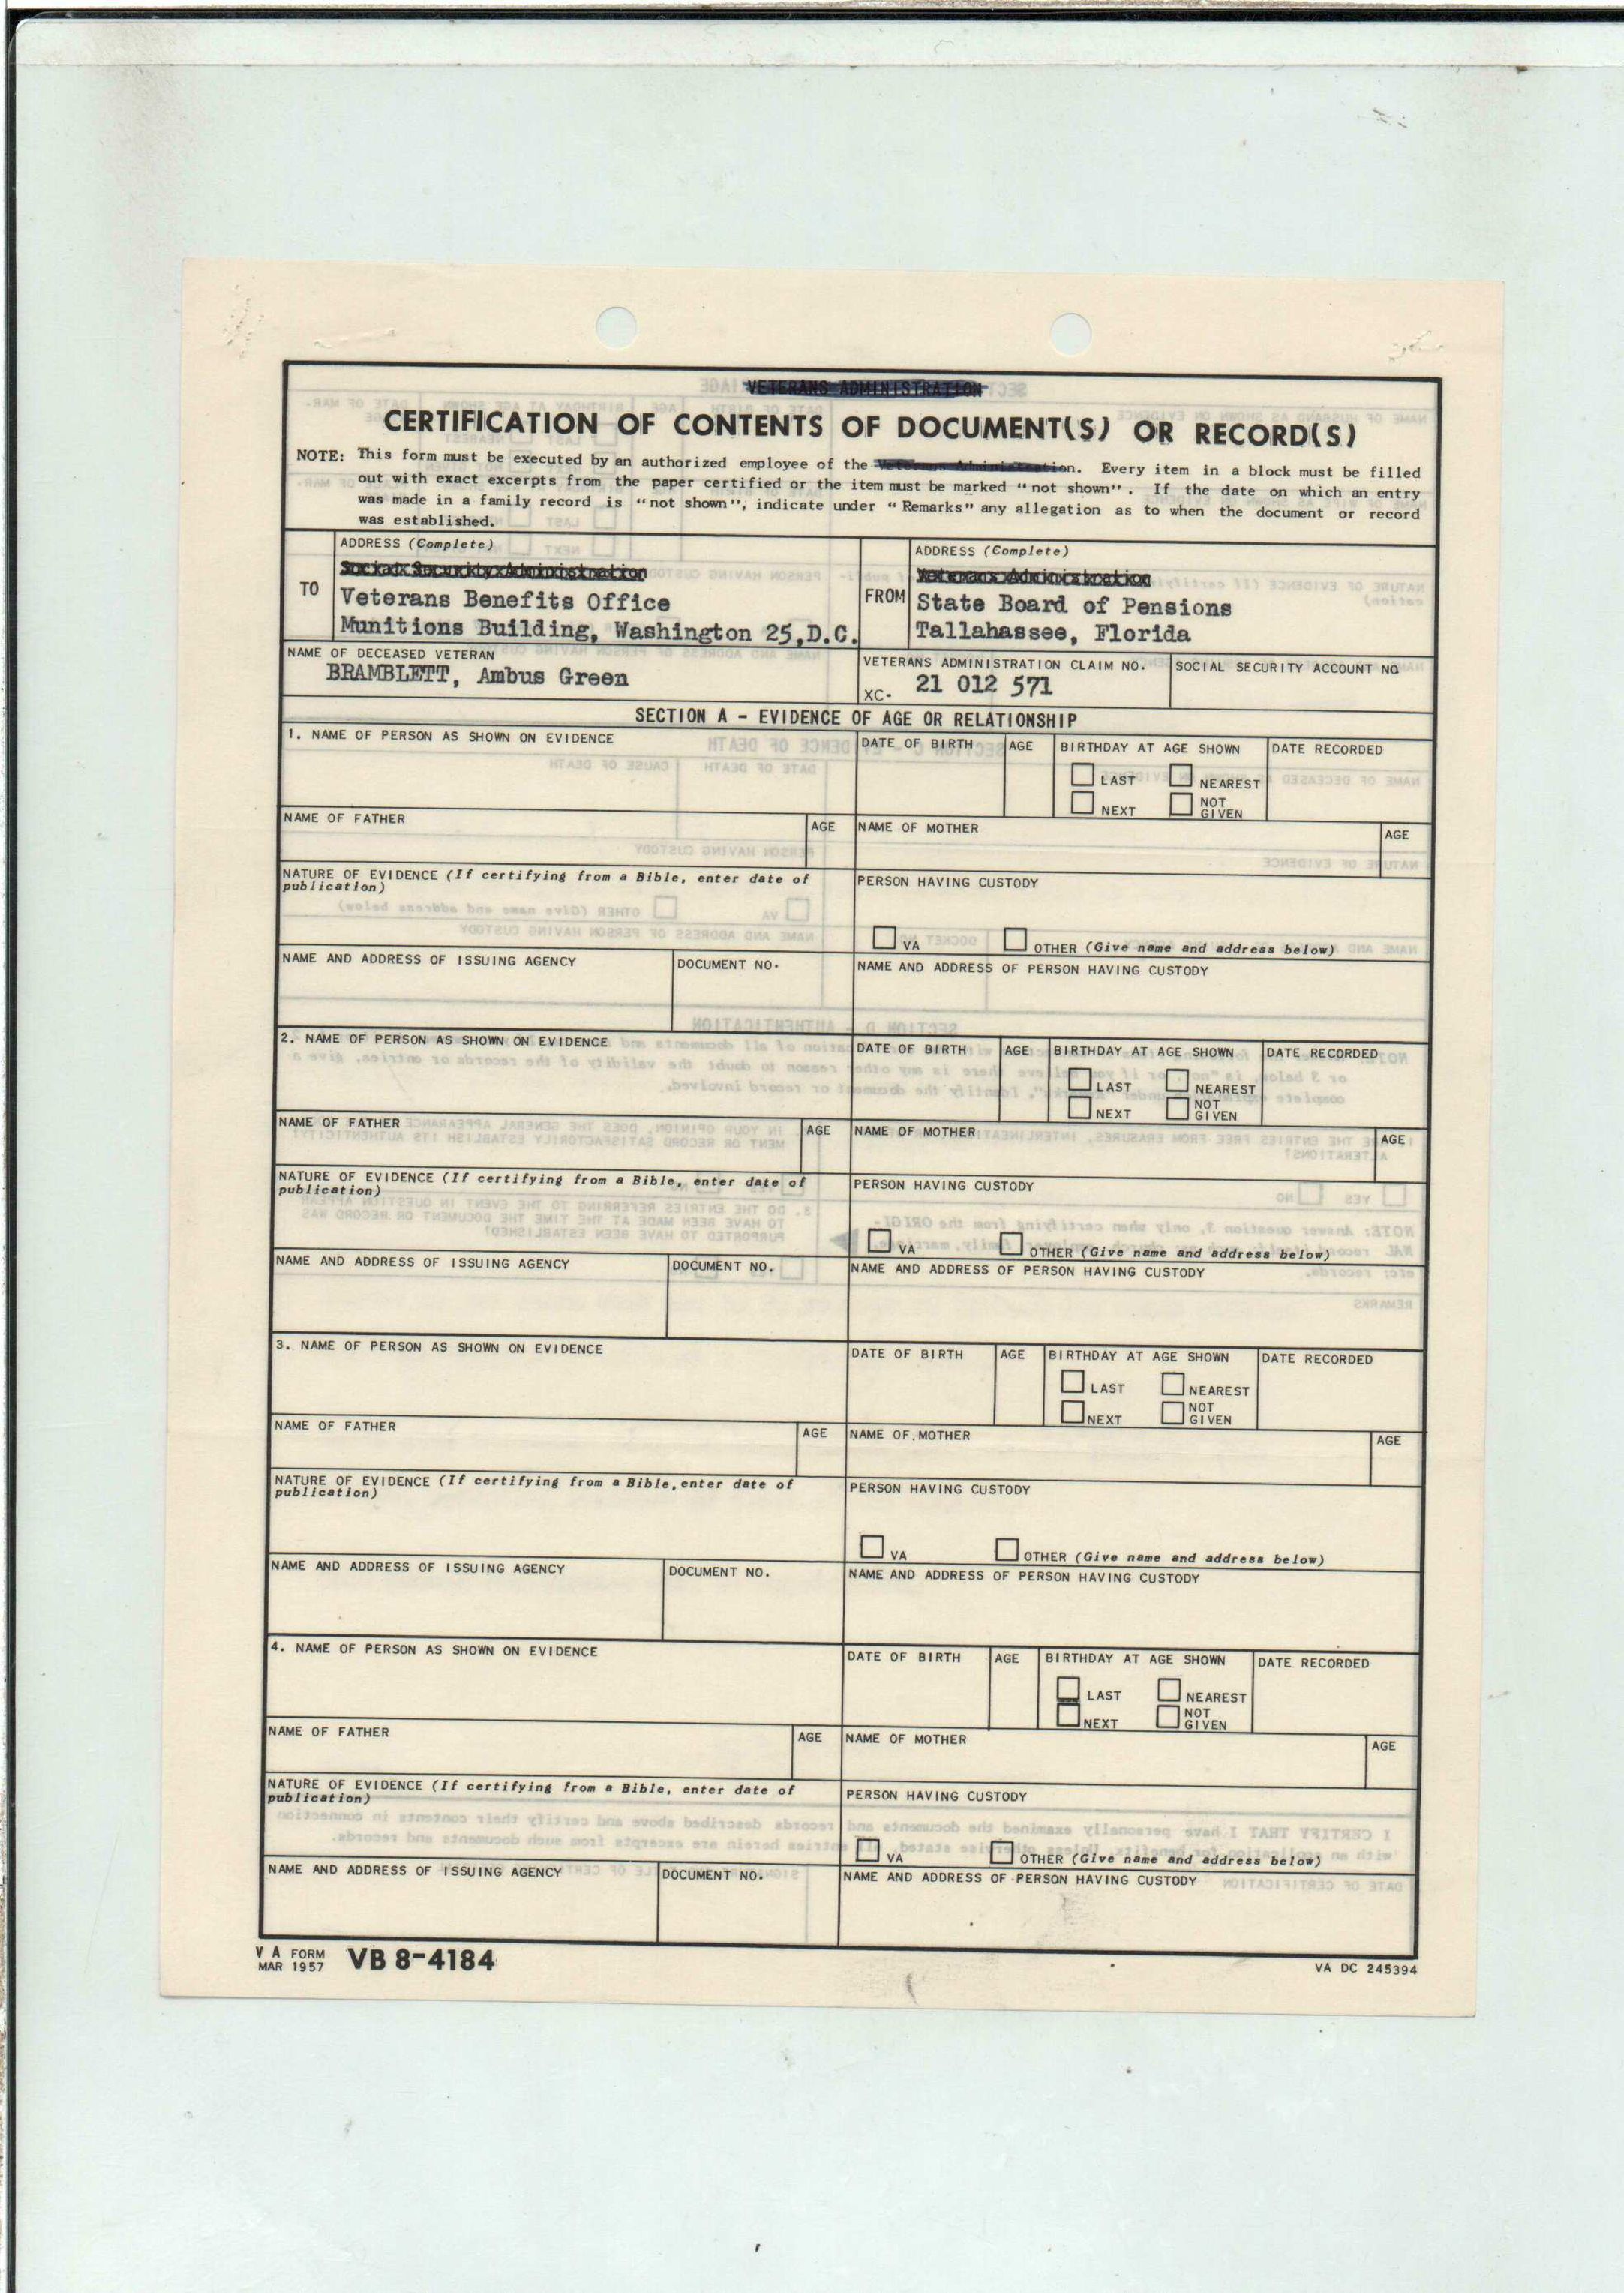 VETERANS ADMINISTRATION
CERTIFICATION OF CONTENTS OF DOCUMENT(S) OR RECORD(S)
NOTE: This form must be executed by an authorized employee of the Veterans Administration. Every item in a block must be filled
out with exact excerpts from the paper certified or the item must be marked "not shown". If the date on which an entry
was made in a family record is "not shown", indicate under "Remarks" any allegation as to when the document or record
was established.
TO
ADDRESS (Complete)
Social Security Administration
Veterans Benefits Office
Munitions Building, Washington 25,D.C.
FROM
ADDRESS (Complete)
Veterans Administration
State Board of Pensions
Tallahassee, Florida
NAME OF DECEASED VETERAN
BRAMBLETT, Ambus Green
VETERANS ADMINISTRATION CLAIM NO.
XC- 21 012 571
SOCIAL SECURITY ACCOUNT NO
SECTION A - EVIDENCE OF AGE OR RELATIONSHIP
1. NAME OF PERSON AS SHOWN ON EVIDENCE
DATE OF BIRTH
AGE
BIRTHDAY AT AGE SHOWN
LAST
NEAREST
NEXT
NOT GIVEN
DATE RECORDED
NAME OF FATHER
AGE
NAME OF MOTHER
AGE
NATURE OF EVIDENCE (If certifying from a Bible, enter date of
publication)
PERSON HAVING CUSTODY
VA
OTHER (Give name and address below)
NAME AND ADDRESS OF ISSUING AGENCY
DOCUMENT NO.
NAME AND ADDRESS OF PERSON HAVING CUSTODY
2. NAME OF PERSON AS SHOWN ON EVIDENCE
DATE OF BIRTH
AGE
BIRTHDAY AT AGE SHOWN
LAST
NEAREST
NEXT
NOT GIVEN
DATE RECORDED
NAME OF FATHER
AGE
NAME OF MOTHER
AGE
NATURE OF EVIDENCE (If certifying from a Bible, enter date of
publication)
PERSON HAVING CUSTODY
VA
OTHER (Give name and address below)
NAME AND ADDRESS OF ISSUING AGENCY
DOCUMENT NO.
NAME AND ADDRESS OF PERSON HAVING CUSTODY
3. NAME OF PERSON AS SHOWN ON EVIDENCE
DATE OF BIRTH
AGE
BIRTHDAY AT AGE SHOWN
LAST
NEAREST
NEXT
NOT GIVEN
DATE RECORDED
NAME OF FATHER
AGE
NAME OF MOTHER
AGE
NATURE OF EVIDENCE (If certifying from a Bible, enter date of
publication)
PERSON HAVING CUSTODY
VA
OTHER (Give name and address below)
NAME AND ADDRESS OF ISSUING AGENCY
DOCUMENT NO.
NAME AND ADDRESS OF PERSON HAVING CUSTODY
4. NAME OF PERSON AS SHOWN ON EVIDENCE
DATE OF BIRTH
AGE
BIRTHDAY AT AGE SHOWN
LAST
NEAREST
NEXT
NOT GIVEN
DATE RECORDED
NAME OF FATHER
AGE
NAME OF MOTHER
AGE
NATURE OF EVIDENCE (If certifying from a Bible, enter date of
publication)
PERSON HAVING CUSTODY
VA
OTHER (Give name and address below)
NAME AND ADDRESS OF ISSUING AGENCY
DOCUMENT NO.
NAME AND ADDRESS OF PERSON HAVING CUSTODY
V A FORM
MAR 1957
VB 8-4184
VA DC 245394